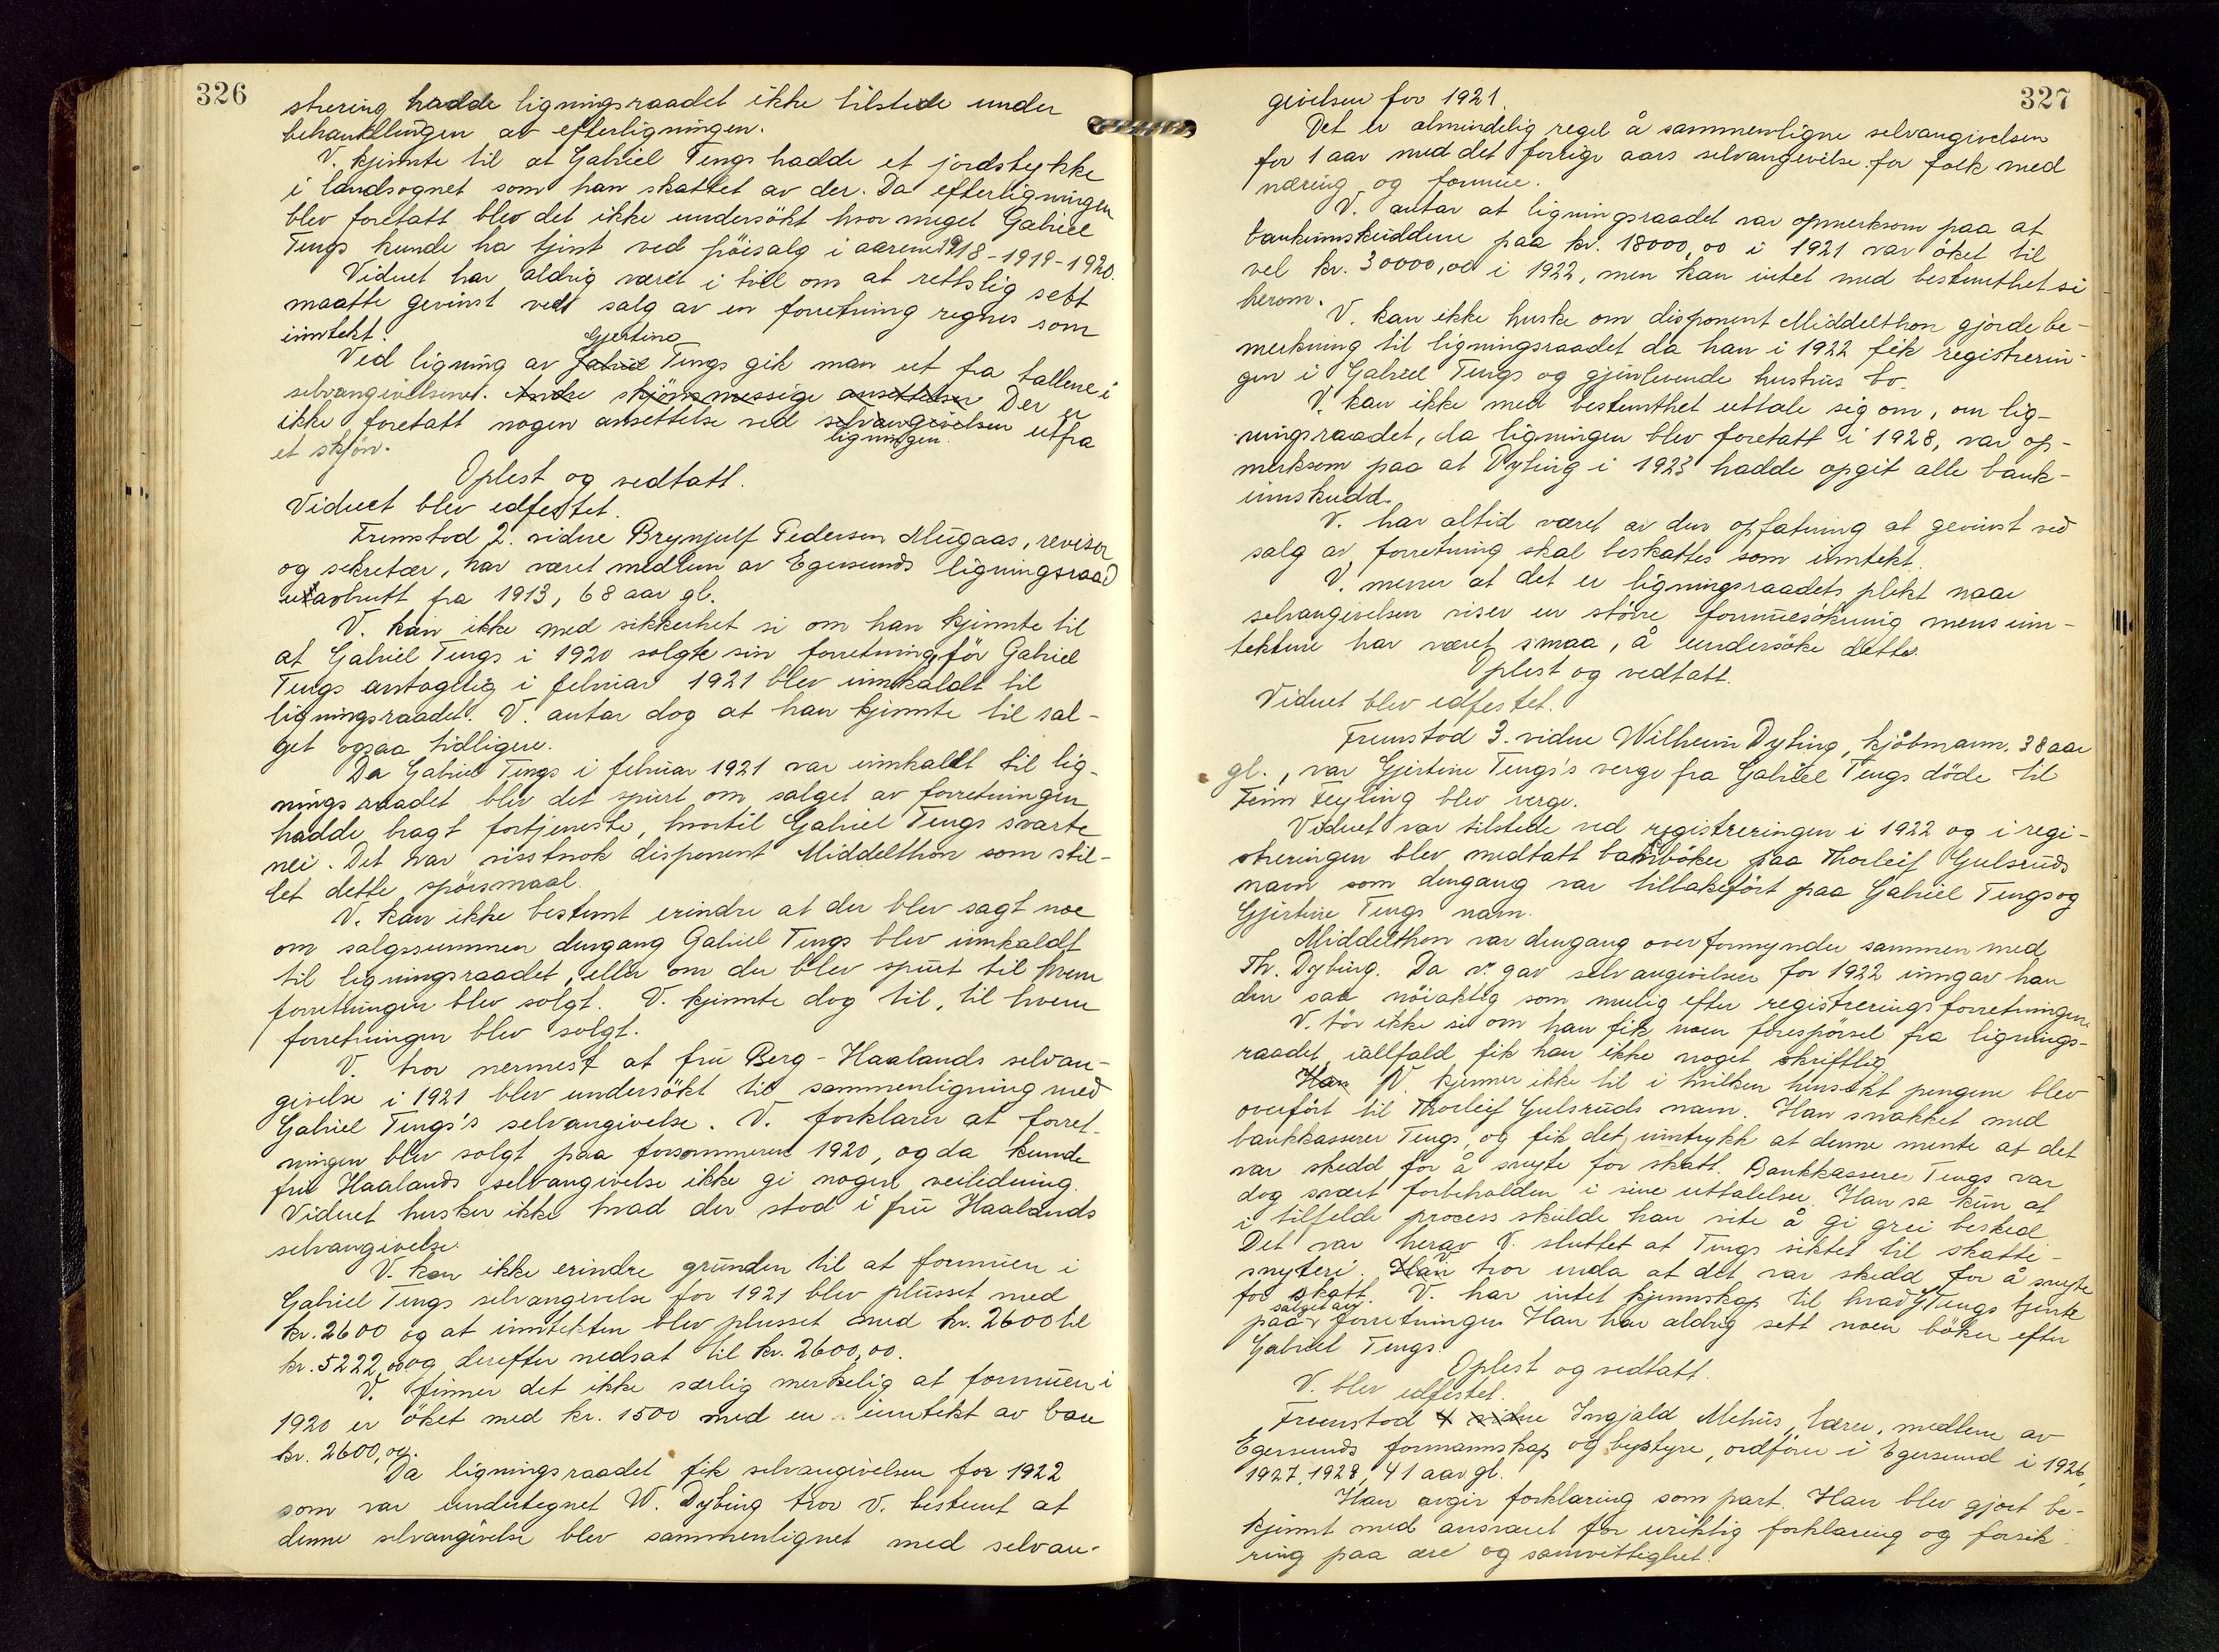 326
strering hadde ligningsraadet ikke tilstede under
behandlingen av efterligningen.
V. kjennte til at Gabriel Tengs hadde et jordstykke
i landsognet som han skattet av der. Da efterligningen
blev foretatt blev det ikke undersökt hvor meget Gabriel
Tengs kunde ha tjent ved höisalg i aarene 1918-1919-1920.
Vidnet har aldrig været i tvil om at rettslig sett
maatte gevinst ved salg av en forretning regnes som
inntekt.
Gjertine
Ved ligning av Gabriel Tengs gik man ut fra tallene i
selvangivelsene. Andre skjönnmessige ansettelser Der er
ikke foretatt nogen ansettelse ved selvangivelsen utfra
ligningen
et skjön.
Oplest og vedtatt.
Vidnet blev edfestet.
Fremstod 2. vidne Brynjulf Pedersen Mugaas, revisor
og sekretær, har været medlem av Egersunds ligningsraad
uavbrutt fra 1913, 68 aar gl.
V. kan ikke med sikkerhet si om han kjennte til
at Gabriel Tengs i 1920 solgte sin forretning för Gabriel
Tengs antagelig i februar 1921 blev innkaldt til
ligningsraadet. V. antar dog at han kjennte til sal-
get ogsaa tidligere.
Da Gabriel Tengs i februar 1921 var innkaldt til lig-
ningsraadet blev det spurt om salget av forretningen
hadde bragt fortjeneste, hvortil Gabriel Tengs svarte
nei. Det var visstnok disponent Middelthon som stil-
let dette spörsmaal.
V. kan ikke bestemt erindre at der blev sagt noe
om salgssummen dengang Gabriel Tengs blev innkaldt
til ligningsraadet, eller om der blev spurt til hvem
forretningen blev solgt. V. kjennte dog til, til hvem
forretningen blev solgt.
V. tror nermest at fru Berg-Haalands selvan-
givelse i 1921 blev undersökt til sammenligning med
Gabriel Tengs's selvangivelse. V. forklarer at forret-
ningen blev solgt paa forsommeren 1920, og da kunde
fru Haalands selvangivelse ikke gi nogen veiledning.
Vidnet husker ikke hvad der stod i fru Haalands
selvangivelse.
V. kan ikke erindre grunden til at formuen i
Gabriel Tengs selvangivelse for 1921 blev plusset med
kr. 2600 og at inntekten blev plusset med kr. 2600 til
kr. 5222,00 og derefter nedsat til kr. 2600,00.
V. finner det ikke særlig merkelig at formuen i
1920 er öket med kr. 1500 med en inntekt av bare
kr. 2600,00.
Da ligningsraadet fik selvangivelsen for 1922
som var undertegnet W. Dybing tror v. bestemt at
denne selvangivelse blev sammenlignet med selvan-
327
givelsen for 1921.
Det er almindelig regel å sammenligne selvangivelsen
for 1 aar med det forrige aars selvangivelse for folk med
næring og formue.
V. antar at ligningsraadet var opmerksom paa at
bankinnskuddene paa kr. 18000,00 i 1921 var öket til
vel kr. 30000,00 i 1922, men kan intet med bestemthet si
herom.
V. kan ikke huske om disponent Middelthon gjorde be-
merkning til ligningsraadet da han i 1922 fik registrerin-
gen i Gabriel Tengs og gjenlevende hustrus bo.
V. kan ikke med bestemthet uttale sig om, om lig-
ningsraadet, da ligningen blev foretatt i 1928, var op-
merksom paa at Dybing i 1923 hadde opgit alle bank-
innskudd.
V. har altid været av den opfatning at gevinst ved
salg av forretning skal beskattes som inntekt.
V. mener at det er ligningsraadets plikt naar
selvangivelsen viser en större formuesökning mens inn-
tektene har været smaa, å undersöke dette.
Oplest og vedtatt.
Vidnet blev edfestet.
Fremstod 3. vidne Wilhelm Dybing, kjöbmann, 38 aar
gl., var Gjertine Tengs's verge fra Gabriel Tengs döde til
Feyling blev verge.
Vidnet var tilstede ved registreringen i 1922 og i regi-
streringen blev medtatt bankböker paa Thorleif Gulsruds
navn som dengang var tilbakefört paa Gabriel Tengs og
Gjertine Tengs navn.
Middelthon var dengang overformynder sammen med
Th. Dybing. Da v. gav selvangivelsen for 1922 inngav han
den saa nöiaktig som mulig efter registreringsforretningen.
V. tör ikke si om han fik noen forespörsel fra lignings-
raadet, iallfald fik han ikke noget skriftlig.
Han V. kjenner ikke til i hvilken hensikt pengene blev
overfört til Thorleif Gulsruds navn. Han snakket med
bankkasserer Tengs, og fik det inntrykk at denne mente at det
var skedd for å snyte for skatt. Bankkasserer Tengs var
dog svært forbeholden i sine uttalelser. Han sa kun at
i tilfelde process skulde han vite å gi grei besked.
Det var herav V. sluttet at Tengs siktet til skatte-
snyteri. Han V tror enda at det var skedd for å snyte
for skatt. V. har intet kjennskap til hvad G Tengs tjente
salget av
paa forretningen Han har aldrig sett noen böker efter
Gabriel Tengs.
Oplest og vedtatt.
V. blev edfestet.
Fremstod 4 vidne Ingjald Mehus, lærer, medlem av
Egersunds formannskap og bystyre, ordförer i Egersund i 1926,
1927, 1928, 41 aar gl.
Han avgir forklaring som part. Han blev gjort be-
kjennt med ansvaret for uriktig forklaring og forsik
ring paa ære og samvittighet.